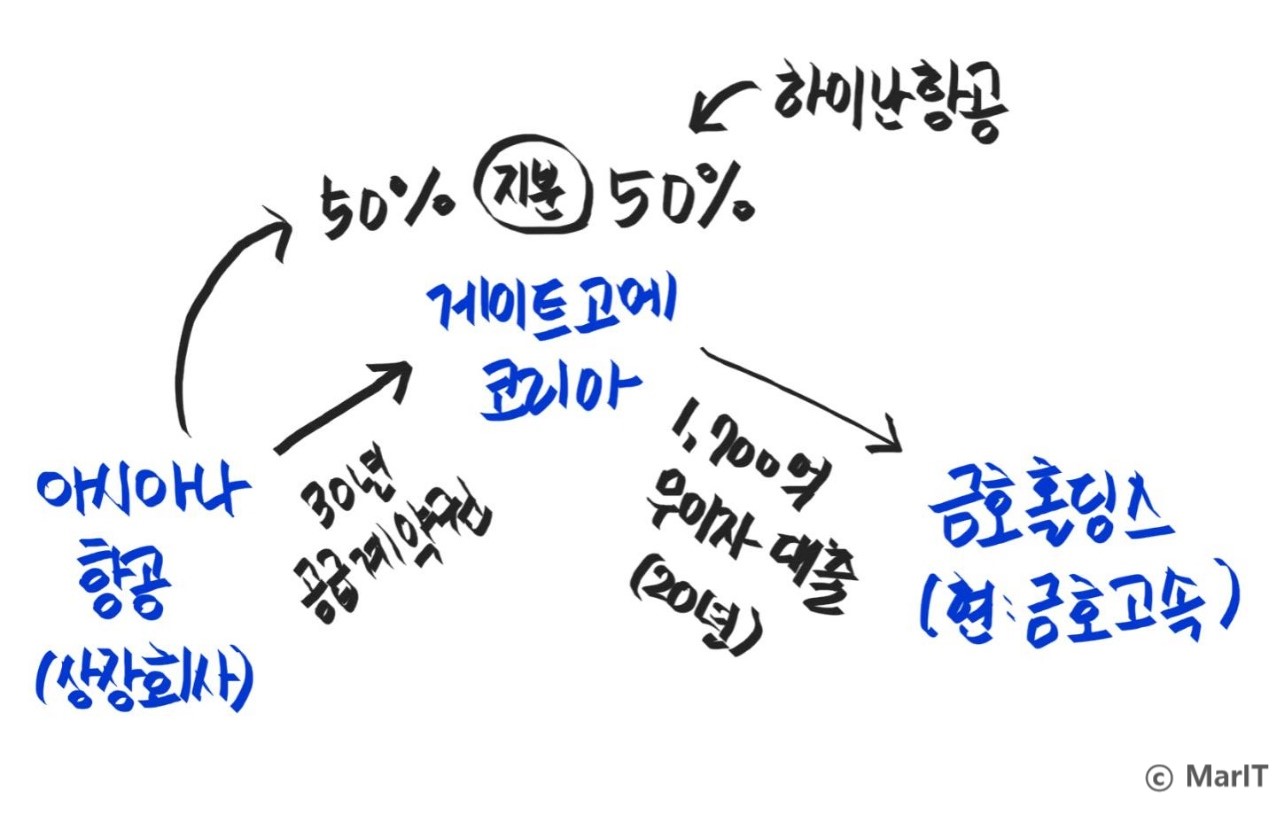 하이난항공
50% 지분 50%
게이트고메
코리아
아시아나
항공
(상장회사)
30년
공급계약권
1,700억
무이자 대출
(20년)
금호홀딩스
(현:금호고속)
© MarIT